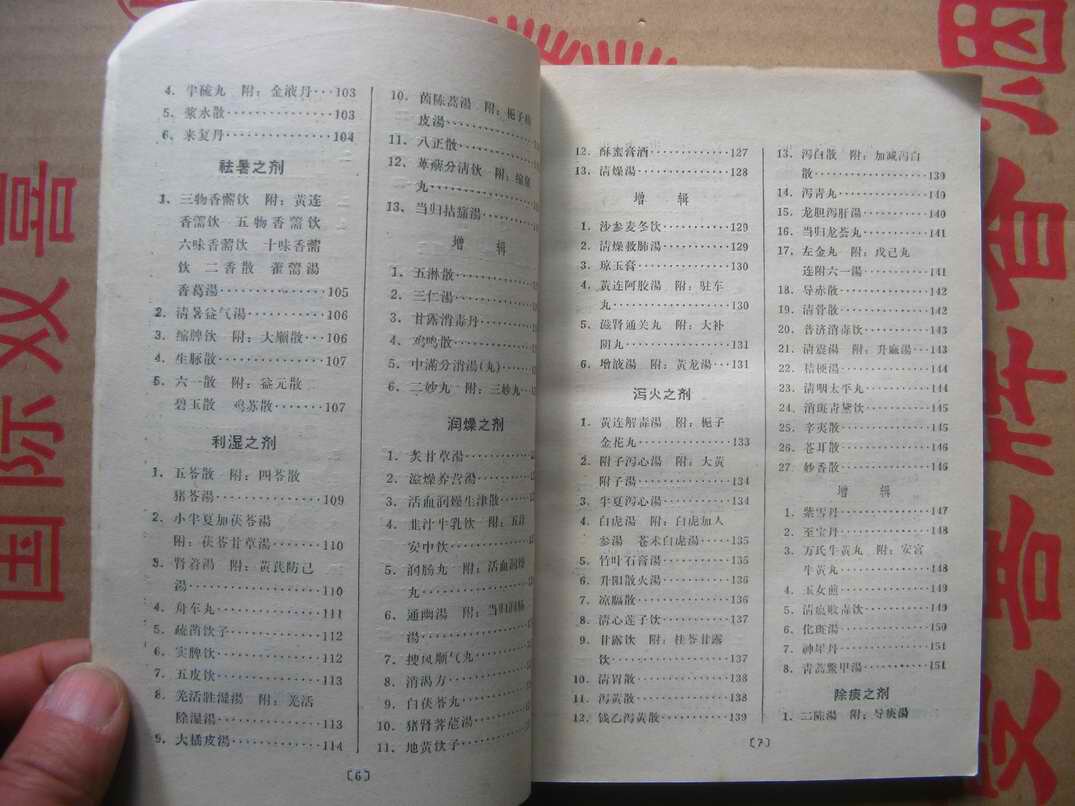 4. 半硫丸 附：金液丹…103
5. 浆水散……………103
6. 来复丹……………104
祛暑之剂
1. 三物香薷饮 附：黄连
香薷饮 五物香薷饮
六味香薷饮 十味香薷
饮 二香散 藿薷汤
香葛湯……………105
2. 清暑益气湯…………106
3. 缩脾饮 附：大顺散…106
4. 生脉散……………107
5. 六一散 附：益元散
碧玉散 鸡苏散………107
利湿之剂
1. 五苓散 附：四苓散
猪苓湯……………109
2. 小半夏加茯苓湯
附：茯苓甘草湯………110
3. 肾着湯 附：黄芪防己
湯………………110
4. 舟车丸……………111
5. 疏凿饮子…………112
6. 实脾饮……………112
7. 五皮饮……………113
8. 羌活胜湿湯 附：羌活
除湿湯……………113
9. 大橘皮湯…………114
〔6〕
10. 茵陈蒿湯 附：栀子
皮湯
11. 八正散
12. 萆薢分清饮 附：缩
丸
13. 当归拈痛湯
增 辑
1. 五淋散
2. 三仁湯
3. 甘露消毒丹
4. 鸡鸣散
5. 中满分消湯(丸)
6. 二妙丸 附：三妙丸
润燥之剂
1. 炙甘草湯
2. 滋燥养营湯
3. 活血润燥生津散
4. 韭汁牛乳饮 附：五汁
安中饮
5. 润肠丸 附：活血润燥
丸
6. 通幽湯 附：当归润肠
湯
7. 搜风顺气丸
8. 消渴方
9. 白茯苓丸
10. 猪肾荠苨湯
11. 地黄饮子
12. 酥蜜膏酒…………127
13. 清燥湯……………128
增 辑
1. 沙参麦冬饮…………129
2. 清燥救肺湯…………129
3. 琼玉膏……………130
4. 黄连阿胶湯 附：驻车
丸………………130
5. 滋肾通关丸 附：大补
阴丸……………131
6. 增液湯 附：黄龙湯…131
泻火之剂
1. 黄连解毒湯 附：栀子
金花丸……………133
2. 附子泻心湯 附：大黄
附子湯……………134
3. 半夏泻心湯…………134
4. 白虎湯 附：白虎加人
参湯 苍术白虎湯……135
5. 竹叶石膏湯…………135
6. 升阳散火湯…………136
7. 凉膈散……………136
8. 清心莲子饮…………137
9. 甘露饮 附：桂苓甘露
饮………………137
10. 清胃散……………138
11. 泻黄散……………138
12. 钱乙泻黄散…………139
13. 泻白散 附：加减泻白
散………………139
14. 泻青丸……………140
15. 龙胆泻肝湯…………140
16. 当归龙荟丸…………141
17. 左金丸 附：戊己丸
连附六一湯…………141
18. 导赤散……………142
19. 清骨散……………142
20. 普济消毒饮…………143
21. 清震湯 附：升麻湯…143
22. 桔梗湯……………144
23. 清咽太平丸…………144
24. 消斑青黛饮…………145
25. 辛夷散……………145
26. 苍耳散……………146
27. 妙香散……………146
增 辑
1. 紫雪丹……………147
2. 至宝丹……………148
3. 万氏牛黄丸 附：安宫
牛黄丸……………148
4. 玉女煎……………149
5. 清瘟败毒饮…………149
6. 化斑湯……………150
7. 神犀丹……………151
8. 青蒿鳖甲湯…………151
除痰之剂
1. 二陈湯 附：导痰湯
〔7〕
国际双喜